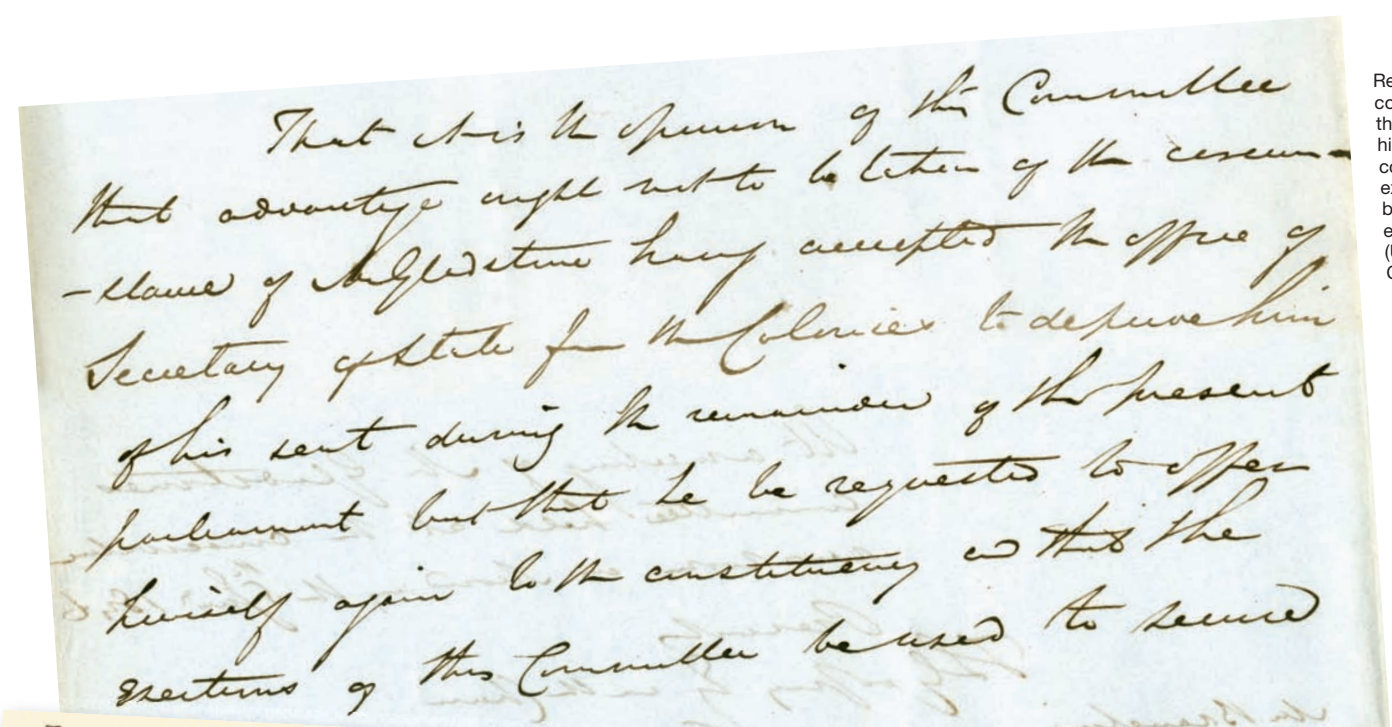 That it is the opinion of this Committee
that advantage ought not to be taken of the circum-
-stance of Mr Gladstone having accepted the office of
Secretary of State for the Colonies to deprive him
of his seat during the remainder of the present
parliament but that he be requested to offer
himself again to the constituency and that the
exertions of this Committee be used to secure
Re
co
th
hi
co
ex
b
e
(